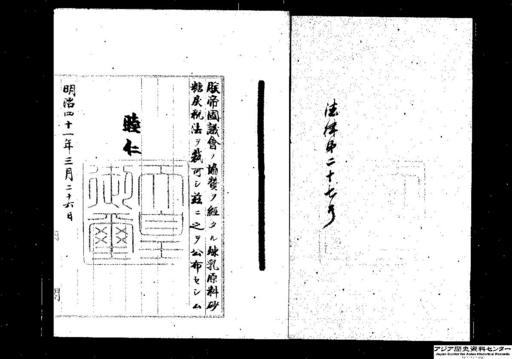 法律第二十七号
朕帝國議會ノ協賛ヲ經タル煉乳原料砂
糖戻税法ヲ裁可シ茲ニ之ヲ公布セシム
睦仁
天皇
御璽
明治四十一年三月二十六日
アジア歴史資料センター
Japan Center for Asian Historical Records